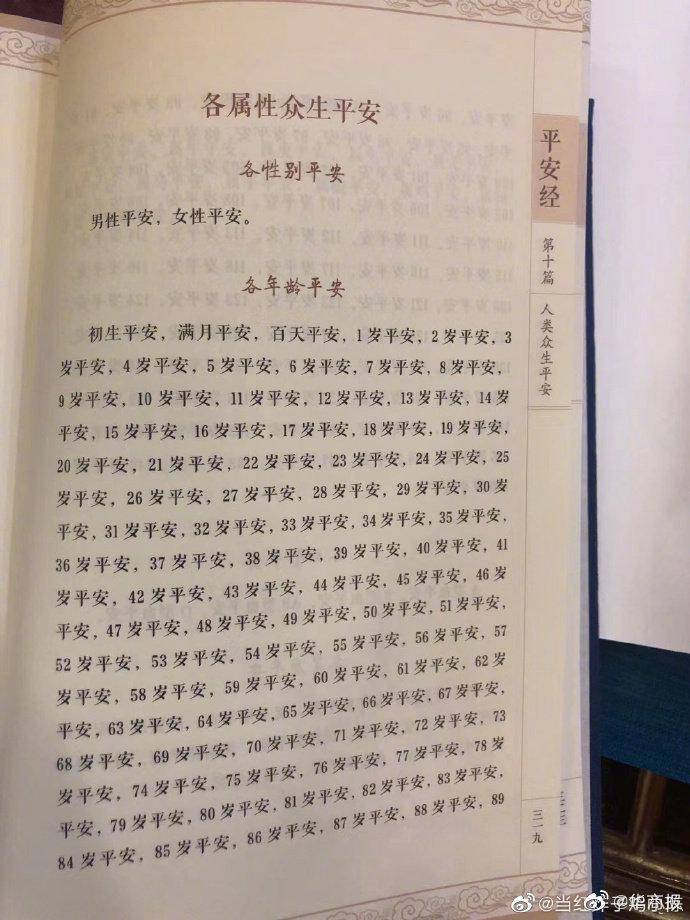 各属性众生平安
各性别平安
男性平安，女性平安。
各年龄平安
初生平安，满月平安，百天平安，1岁平安，2岁平安，3
岁平安，4岁平安，5岁平安，6岁平安，7岁平安，8岁平安，
9岁平安，10岁平安，11岁平安，12岁平安，13岁平安，14岁
平安，15岁平安，16岁平安，17岁平安，18岁平安，19岁平安，
20岁平安，21岁平安，22岁平安，23岁平安，24岁平安，25
岁平安，26岁平安，27岁平安，28岁平安，29岁平安，30岁
平安，31岁平安，32岁平安，33岁平安，34岁平安，35岁平安，
36岁平安，37岁平安，38岁平安，39岁平安，40岁平安，41
岁平安，42岁平安，43岁平安，44岁平安，45岁平安，46岁
平安，47岁平安，48岁平安，49岁平安，50岁平安，51岁平安，
52岁平安，53岁平安，54岁平安，55岁平安，56岁平安，57
岁平安，58岁平安，59岁平安，60岁平安，61岁平安，62岁
平安，63岁平安，64岁平安，65岁平安，66岁平安，67岁平安，
68岁平安，69岁平安，70岁平安，71岁平安，72岁平安，73
岁平安，74岁平安，75岁平安，76岁平安，77岁平安，78岁
平安，79岁平安，80岁平安，81岁平安，82岁平安，83岁平安，
84岁平安，85岁平安，86岁平安，87岁平安，88岁平安，89
平安经
第十篇
人类众生平安
三一九
@华商报